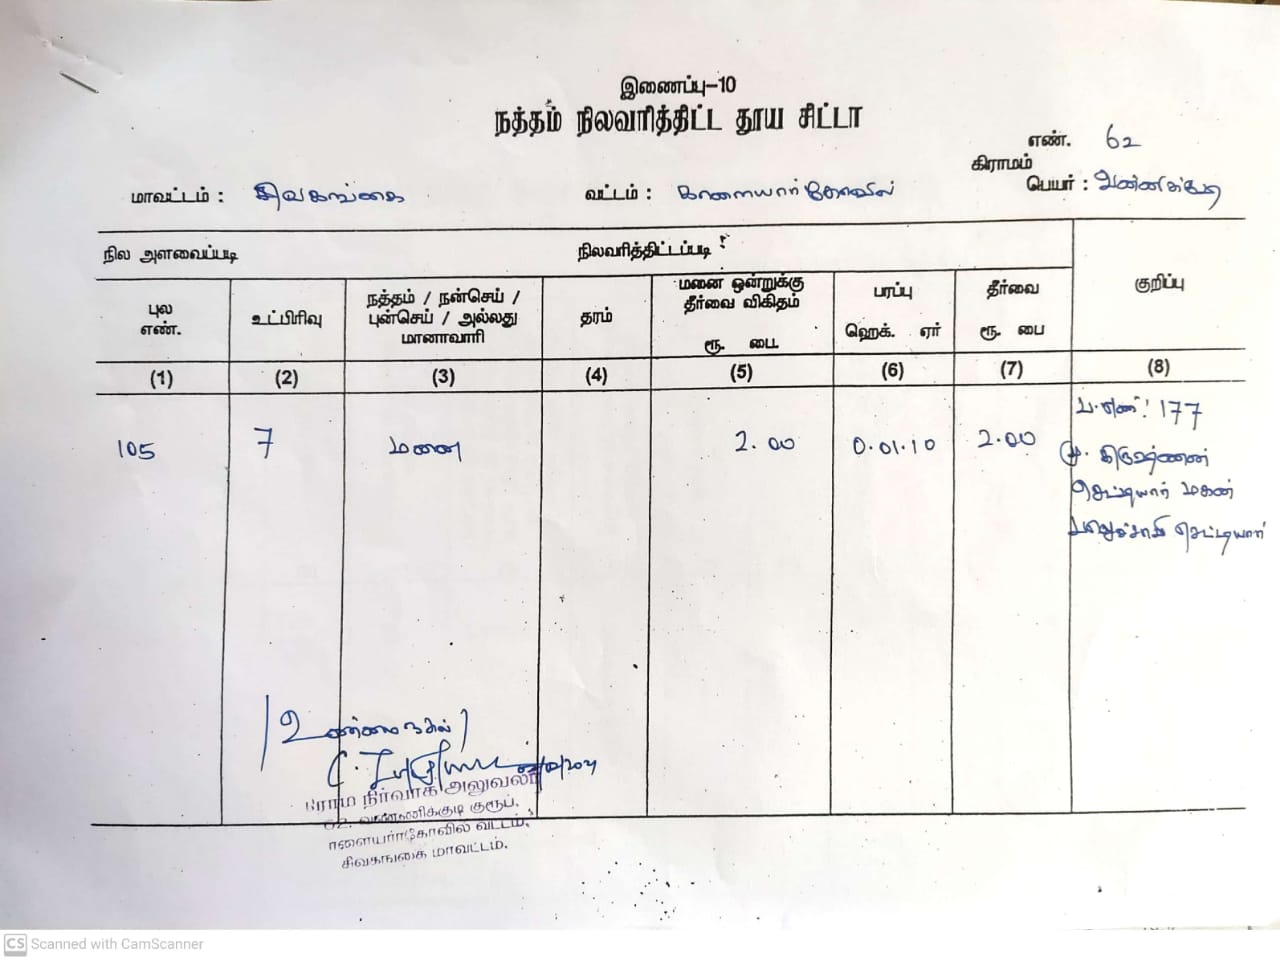 இணைப்பு-10
நத்தம் நிலவரித்திட்ட தூய சிட்டா
எண். 62
மாவட்டம் : சிவகங்கை வட்டம் : காளையார்கோவில் கிராமம் பெயர் :
நில அளவைப்படி நிலவரித்திட்டப்படி குறிப்பு
புல எண். உட்பிரிவு நத்தம் / நன்செய் / புன்செய் / அல்லது மானாவாரி தரம் மனை ஒன்றுக்கு தீர்வை விகிதம் ரூ. பை. பரப்பு ஹெக். ஏர் தீர்வை ரூ. பை
(1) (2) (3) (4) (5) (6) (7) (8)
105 7 மனை 2.00 0.01.10 2.00 ப.எண்: 177
மு. கிருஷ்ணன்
செட்டியார் மகன்
செட்டியார்
/உண்மை நகல்/
நிர்வாக அலுவலர்
குரூப்,
வட்டம்,
சிவகங்கை மாவட்டம்.
CS Scanned with CamScanner